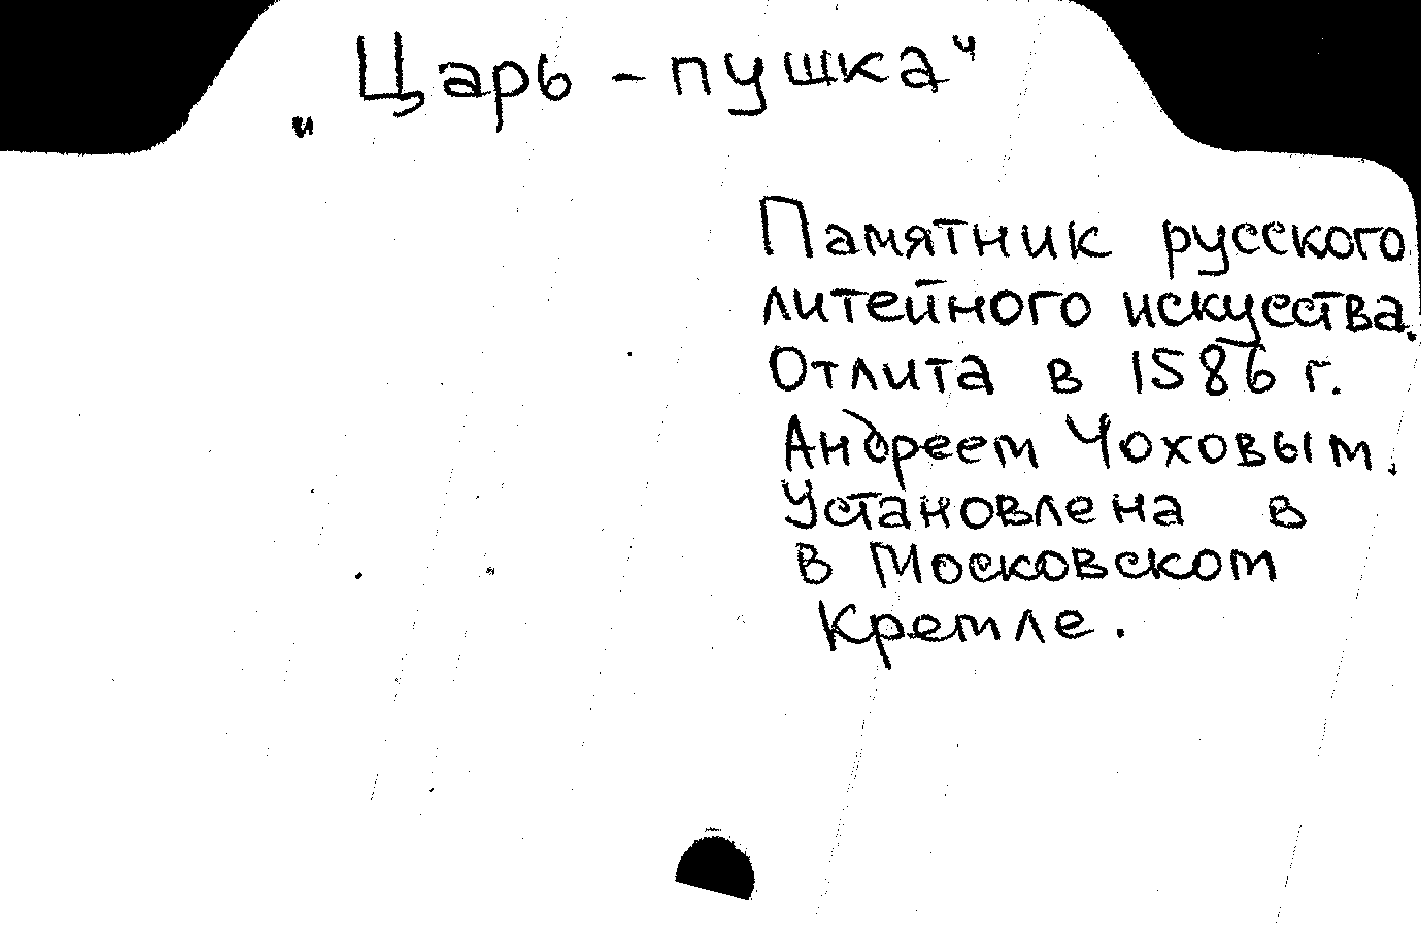 „Царь - пушка"
Памятник русского
литейного искусства.
Отлита в 1586 г.
Андреем Чоховым.
Установлена в
в Московском
Кремле.